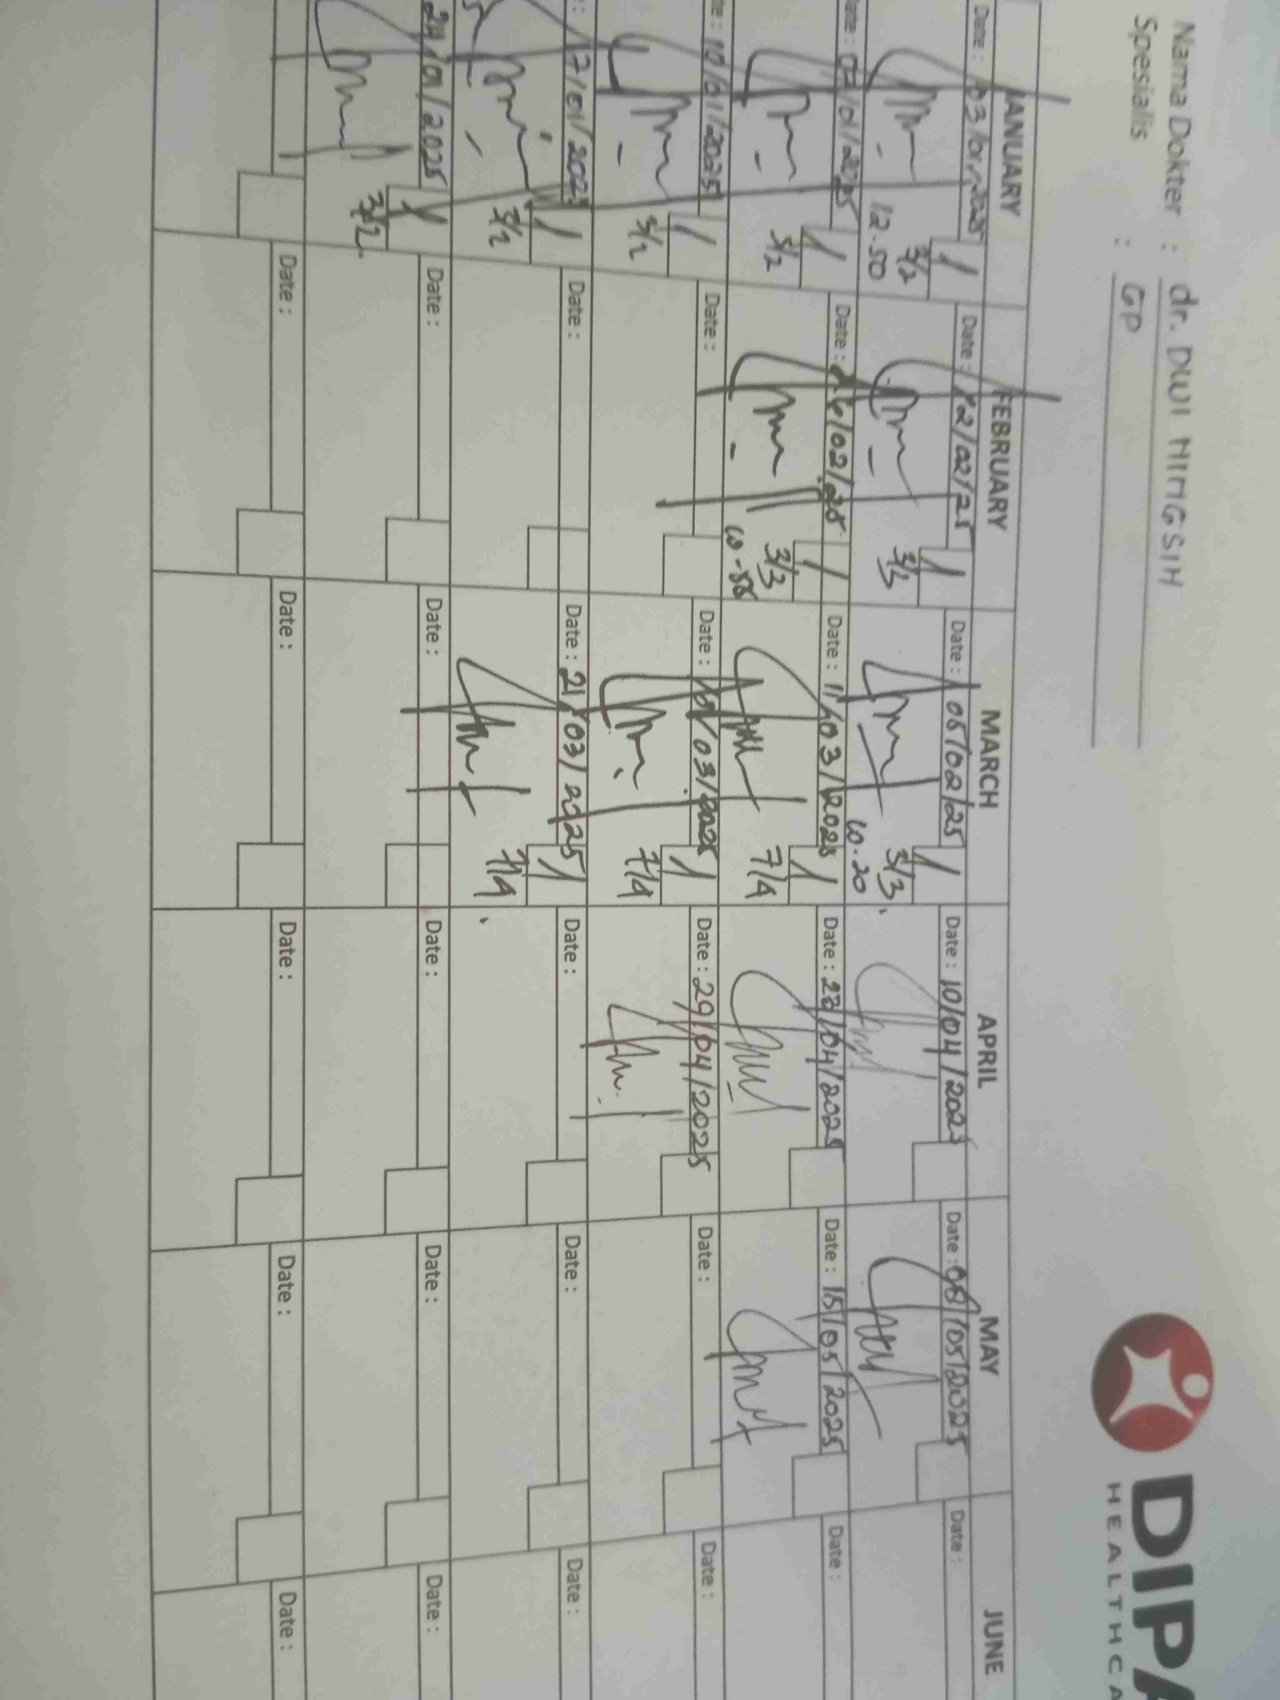 DIPA
HEALTHCA
Nama Dokter : dr. DWI NINGSIH
Spesialis : GP
JANUARY FEBRUARY MARCH APRIL MAY JUNE
Date : 03/01/2025 Date : 12/02/25 Date : 05/02/25 Date : 10/04/2025 Date : 08/05/2025 Date :
3/2 3/3 5/3
12.50 10.20
Date : 07/01/2025 Date : 26/02/25 Date : 11/03/2025 Date : 22/04/2025 Date : 15/05/2025 Date :
3/2 3/3 7/4
10.55
te : 10/01/2025 Date : Date : 18/03/2025 Date : 29/04/2025 Date : Date :
3/2 7/4
: 17/01/2025 Date : Date : 21/03/2025 Date : Date : Date :
3/2 7/4
24/01/2025 Date : Date : Date : Date : Date :
3/2
Date : Date : Date : Date : Date :